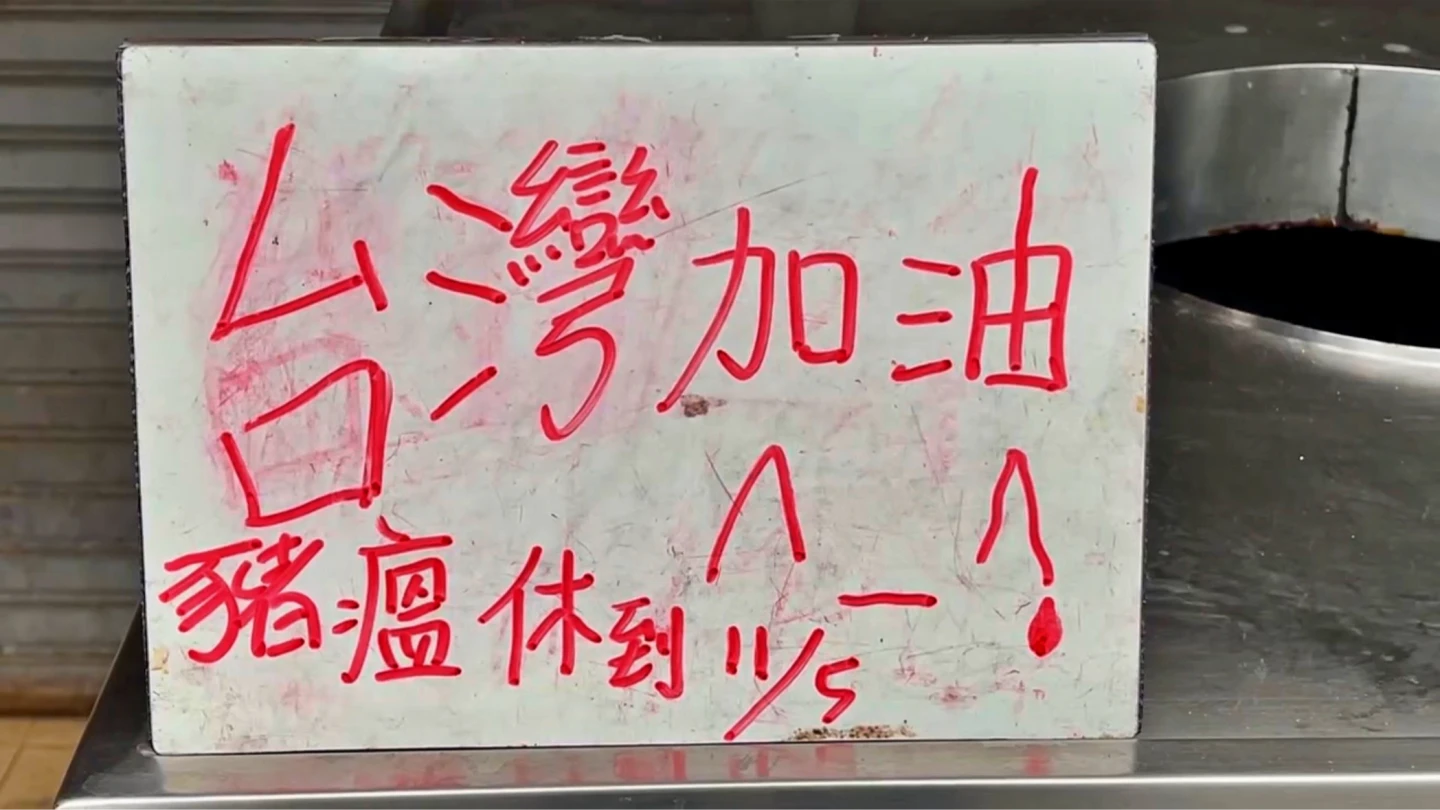 台灣加油
^_^
豬瘟休到11/5